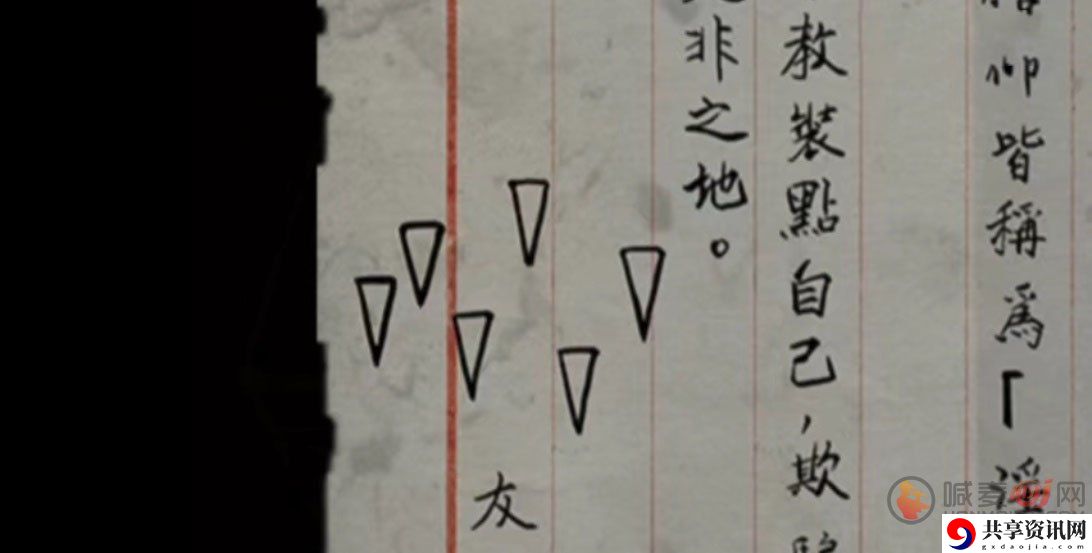 仰皆稱爲「淫
教裝點自己，欺
非之地。
友
共享资讯网
gxdaojia.com